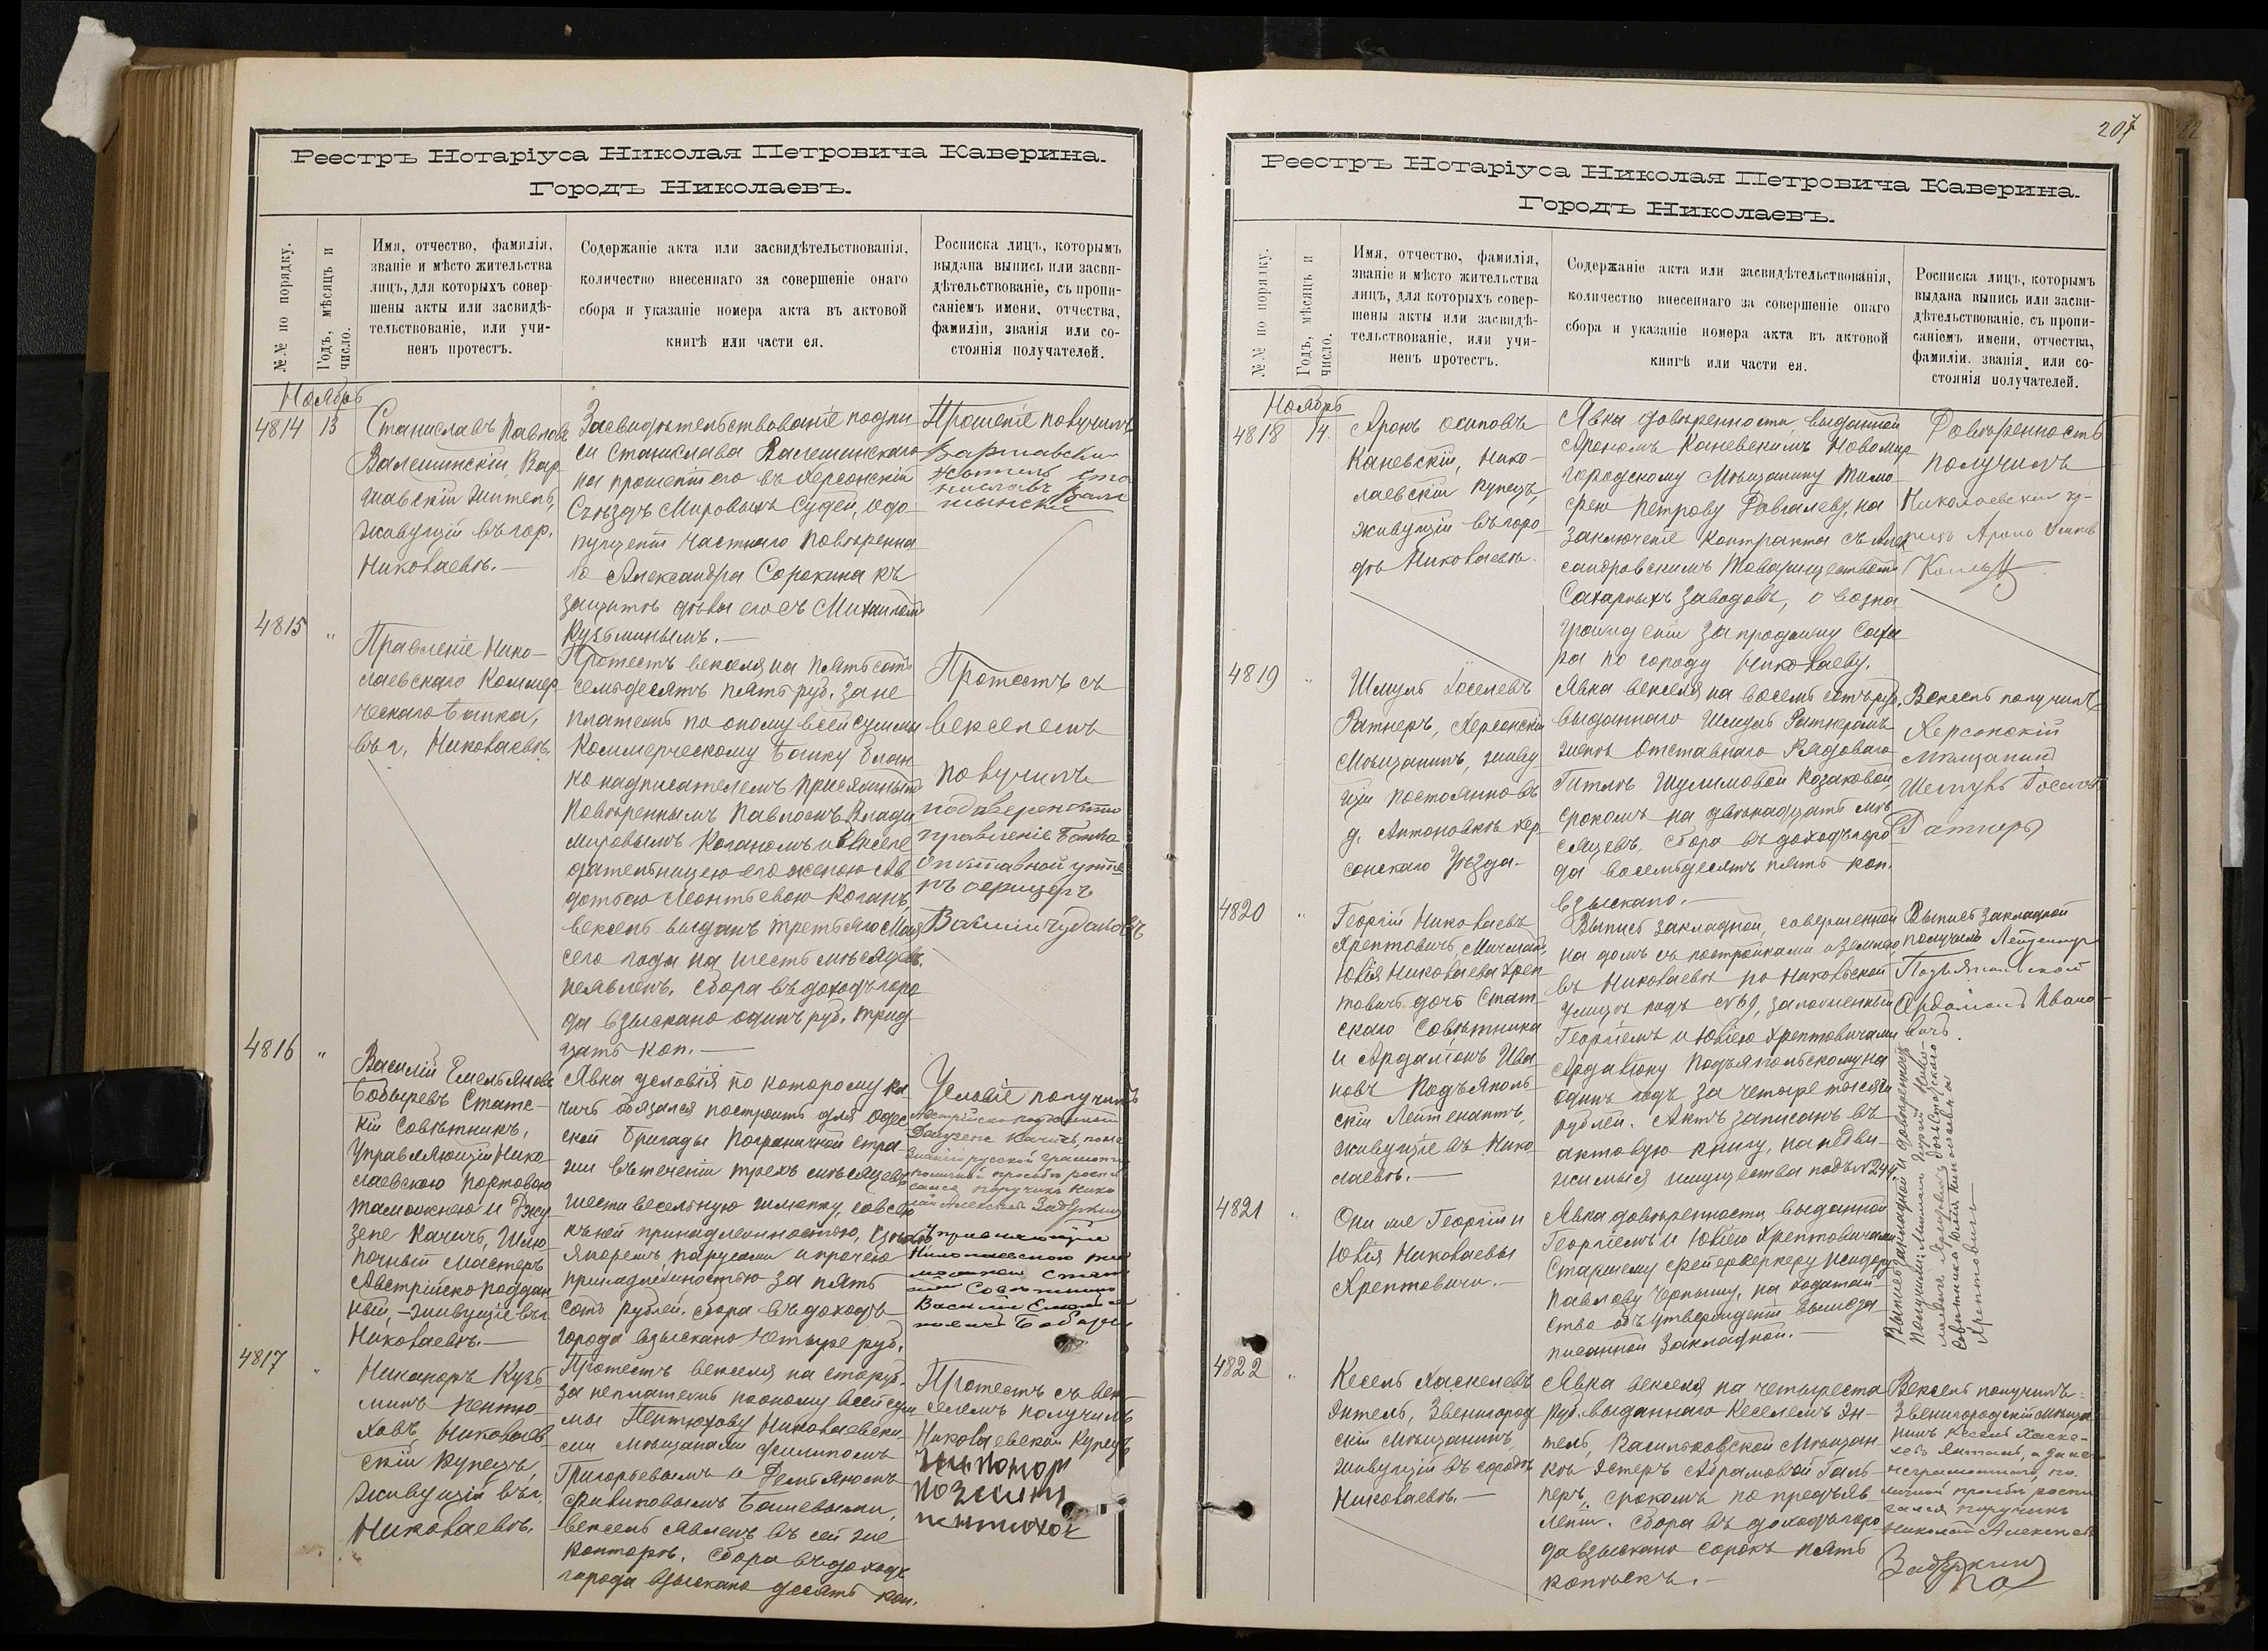 Реестръ Нотаріуса Николая Петровича Каверина.
Городъ Николаевъ.
№№ по порядку.
Годъ, мѣсяцъ и
число.
Имя, отчество, фамилія,
званіе и мѣсто жительства
лицъ, для которыхъ совер-
шены акты или засвидѣ-
тельствованіе, или учи-
ненъ протестъ.
Содержаніе акта или засвидѣтельствованія,
количество внесеннаго за совершеніе онаго
сбора и указаніе номера акта въ актовой
книгѣ или части ея.
Росписка лицъ, которымъ
выдана выпись или засви-
дѣтельствованіе, съ пропи-
саніемъ имени, отчества,
фамиліи, званія или со-
стоянія получателей.
Ноябрь
4814 13
Станиславъ Павловъ
Валешинскій, Вар-
шавскій житель,
живущій въ гор.
Николаевѣ. —
Засвидѣтельствованіе подпи
си Станислава Валешинскаго
на прошеніи его въ Херсонскій
Съѣздъ Мировыхъ Судей, о до-
пущеніи частнаго повѣренна
го Александра Сорокина къ
защитѣ дѣла его съ Михаиломъ
Кузьминымъ. —
Прошеніе получилъ
Варшавскій
житель Ста
ниславъ Вале
шынскій
4815 "
Правленіе Нико-
лаевскаго Коммер
ческаго банка,
въ г. Николаевѣ.
Протестъ векселя на пятьсотъ
семьдесятъ пять руб. за не
платежъ по оному всей суммы
Коммерческому банку блан
ко надписателемъ присяжнымъ
повѣреннымъ Павломъ Влади
мировымъ Коганомъ и Вексе
дательницею его женою Ав
дотьею Леонтьевою Коганъ,
вексель выданъ третьяго Мая
сего года на шесть мѣсяцевъ.
неявленъ. Сбора въ доходъ горо
да взыскано одинъ руб. трид
цать коп. —
Протестъ съ
векселемъ
получилъ
по доверенности
правленіе Банка
Отставной унте
ръ офицеръ
4816 "
Василій Емельяновъ
Бобыревъ Статс-
кій Совѣтникъ,
Управляющій Нико-
лаевскою портовою
таможнею и Джу
зепе Качичъ, Шлю
почный мастеръ
Австрійско поддан
ный, — живущіе въ г.
Николаевѣ. —
Явка условія по которому Ка
чичъ обязался построить для Одес
ской бригады Пограничной стра
жи въ теченіи трехъ мѣсяцевъ
шести весельную шлюпку, со всею
къ ней принадлежностью,
якоремъ, парусами и прочею
принадлежностью за пять
сотъ рублей. сбора въ доходъ
города взыскано четыре руб.
Условіе получилъ
Австрійско подданный
Джузепе Качичъ, по не
знанію русской грамоты
по личной просьбѣ роспи
сался поручикъ Нико
лай Алексѣевъ Задеркин
Управляющій
Николаевскою та
можнею Статс
кій Совѣтникъ
Василій Емелья
новичъ Бобырев
4817 "
Никаноръ Кузь
минъ Пентю-
ховъ, Николаев-
скій Купецъ,
живущій въ г.
Николаевѣ.
Протестъ векселя на сто руб.
за неплатежъ по оному всей сум
мы Пентюхову Николаевски-
ми мѣщанами Филипомъ
Григорьевымъ и Демьяномъ
Филиповымъ Башевыми,
вексель явленъ въ сей же
конторѣ. сбора въ доходъ
города взыскано десять коп.
Протестъ съ век-
селемъ получилъ
Николаевской Купецъ
207
Реестръ Нотаріуса Николая Петровича Каверина.
Городъ Николаевъ.
№№ по порядку.
Годъ, мѣсяцъ и
число.
Имя, отчество, фамилія,
званіе и мѣсто жительства
лицъ, для которыхъ совер-
шены акты или засвидѣ-
тельствованіе, или учи-
ненъ протестъ.
Содержаніе акта или засвидѣтельствованія,
количество внесеннаго за совершеніе онаго
сбора и указаніе номера акта въ актовой
книгѣ или части ея.
Росписка лицъ, которымъ
выдана выпись или засви-
дѣтельствованіе, съ пропи-
саніемъ имени, отчества,
фамиліи, званія или со-
стоянія получателей.
Ноябрь
4818 14
Аронъ Осиповъ
Каневскій, Нико-
лаевскій Купецъ,
живущій въ горо-
дѣ Николаевѣ.
Явка довѣренности, выданной
Арономъ Каневскимъ Новомир
городскому Мѣщанину Тимо
фею Петрову Довгалеву, на
заключеніе контракта съ Алек
сандровскимъ Товариществомъ
Сахарныхъ заводовъ, о возна
гражденіи за продажу саха
ра по городу Николаеву.
Довѣренность
получилъ
Николаевскій ку-
пецъ Аронъ Осиповъ
4819 "
Шмуль Іоселевъ
Ратнеръ, Херсонскій
Мѣщанинъ, живу
щій постоянно въ
д. Антоновкѣ Хер
сонскаго Уѣзда. —
Явка векселя на восемь сотъ руб.
выданнаго Шмулъ Ратнеромъ
женѣ Отставнаго Рядоваго
Гитлѣ Шулимовой Козаковой,
срокомъ на двѣнадцать мѣ
сяцевъ. Сбора въ доходъ горо
да восемьдесятъ пять коп.
взыскано. —
Вексель получилъ
Херсонскій
Мѣщанинъ
Шмуль Іоселевъ
Ратнеръ
4820 "
Георгій Николаевъ
Хрептовичъ, Мичманъ,
Юлія Николаева Хреп-
товичъ дочь Стат-
скаго Совѣтника
и Ардаліонъ Ива-
новъ Подъяполь-
скій Лейтенантъ,
живущіе въ Нико
лаевѣ. —
Выпись закладной, совершенной
на домъ съ постройками и землею
въ Николаевѣ по Никольской
улицѣ подъ №69, заложенный
Георгіемъ и Юліею Хрептовичами
Ардаліону Подъяпольскому на
одинъ годъ за четыре тысячи
рублей. Актъ записанъ въ
актовую книгу, на недви-
жимыя имущества подъ №244.
Выпись закладной
получилъ Лейтенантъ
Подъяпольской
Ардаліонъ Ивано-
вичъ.
4821 "
Они же Георгій и
Юлія Николаевы
Хрептовичи. —
Явка довѣренности, выданной
Георгіемъ и Юліею Хрептовичами
Старшему фейерверкеру Исидору
Павлову Черныму, на ходатай-
ство объ утвержденіи вышеза
писанной закладной. —
Выпись закладной и довѣренность
получили Мичманъ Георгій Нико-
лаевичъ Хрептовичъ дочь Статскаго
Совѣтника Юлія Николаевна
Хрептовичъ
4822 "
Кесель Хаскелевъ
Янтель, Звенигород
скій мѣщанинъ,
живущій въ городѣ
Николаевѣ. —
Явка векселя на четыреста
руб. выданнаго Кеселемъ Ян-
тель, Васильковской Мѣщан-
кѣ Эстеръ Абрамовой Галь-
перъ, срокомъ по предъяв-
леніи. Сбора въ доходъ горо
да взыскано сорокъ пять
копѣекъ. —
Вексель получилъ
Звенигородскій мѣща
нинъ Кесель Хаске-
левъ Янтель, а за не
неграмотнаго, по
личной просьбѣ роспи
сался поручикъ
Николай Алексѣевъ